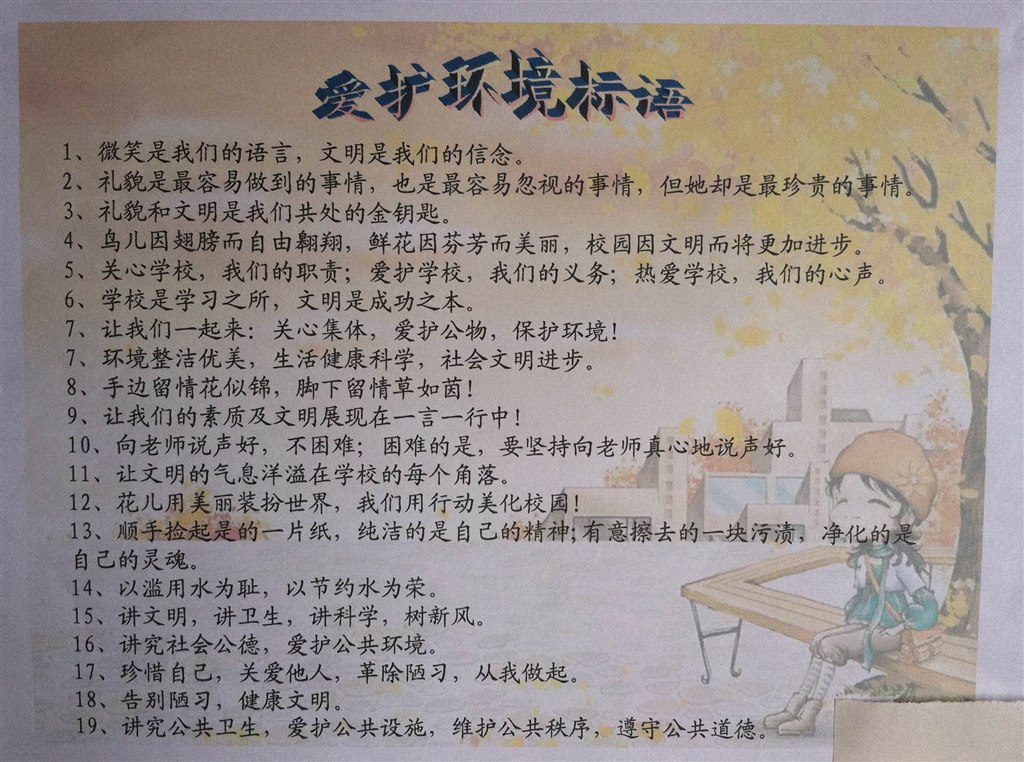 爱护环境标语
1、微笑是我们的语言，文明是我们的信念。
2、礼貌是最容易做到的事情，也是最容易忽视的事情，但她却是最珍贵的事情。
3、礼貌和文明是我们共处的金钥匙。
4、鸟儿因翅膀而自由翱翔，鲜花因芬芳而美丽，校园因文明而将更加进步。
5、关心学校，我们的职责；爱护学校，我们的义务；热爱学校，我们的心声。
6、学校是学习之所，文明是成功之本。
7、让我们一起来：关心集体，爱护公物，保护环境！
7、环境整洁优美，生活健康科学，社会文明进步。
8、手边留情花似锦，脚下留情草如茵！
9、让我们的素质及文明展现在一言一行中！
10、向老师说声好，不困难；困难的是，要坚持向老师真心地说声好。
11、让文明的气息洋溢在学校的每个角落。
12、花儿用美丽装扮世界，我们用行动美化校园！
13、顺手捡起是的一片纸，纯洁的是自己的精神；有意擦去的一块污渍，净化的是
自己的灵魂。
14、以滥用水为耻，以节约水为荣。
15、讲文明，讲卫生，讲科学，树新风。
16、讲究社会公德，爱护公共环境。
17、珍惜自己，关爱他人，革除陋习，从我做起。
18、告别陋习，健康文明。
19、讲究公共卫生，爱护公共设施，维护公共秩序，遵守公共道德。